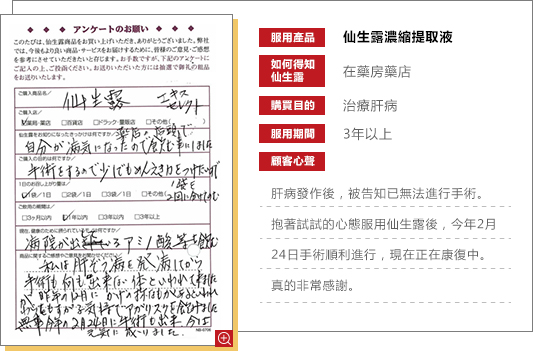 アンケートのお願い
このたびは、仙生露商品をお買い上げいただき、ありがとうございました。弊社
では、今後もより良い商品・サービスをお届けするために、皆様のご意見・ご感想
を参考にさせていただきたいと存じます。お手数ですが、下記のアンケートに
ご記入の上、ご投函ください。お送りいただいた方には抽選で御礼の粗品
をお送りいたします。
ご購入商品名/
仙生露 エキス
セレクト
ご購入店/
薬局・薬店 □百貨店 □ドラック・量販店 □その他(
仙生露をお知りになったきっかけは何ですか/ 薬店の店頭で
自分が病気になったので飲む事にしました
ご購入の目的は何ですか/
1日のお召し上がり量は/
1袋/1日 □2袋/1日 □3袋/1日 □その他(
ご飲用の期間は/
□3ヶ月以内 1年以内 □3年以内 □3年以上
現在、健康のために摂られているものは何ですか/
商品に関するご感想やご意見をお聞かせください/
私は肝ぞう病を発病してから
手術も何も出来ない体といわれて来ました
NS-0706
服用產品 仙生露濃縮提取液
如何得知
仙生露 在藥房藥店
購買目的 治療肝病
服用期間 3年以上
顧客心聲
肝病發作後,被告知已無法進行手術。
抱著試試的心態服用仙生露後,今年2月
24日手術順利進行,現在正在康復中。
真的非常感謝。